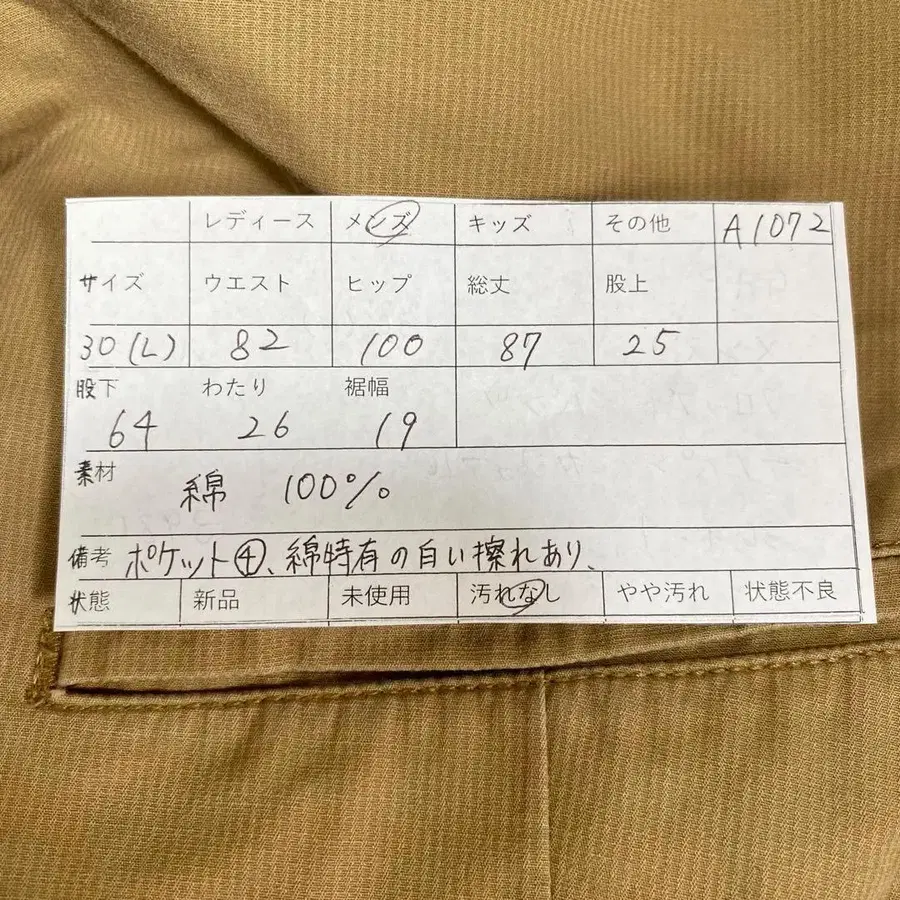 レディース メンズ キッズ その他 A1072
サイズ ウエスト ヒップ 総丈 股上
30(L) 82 100 87 25
股下 わたり 裾幅
64 26 19
素材
綿 100%
備考 ポケット④、綿特有の白い擦れあり、
状態 新品 未使用 汚れなし やや汚れ 状態不良